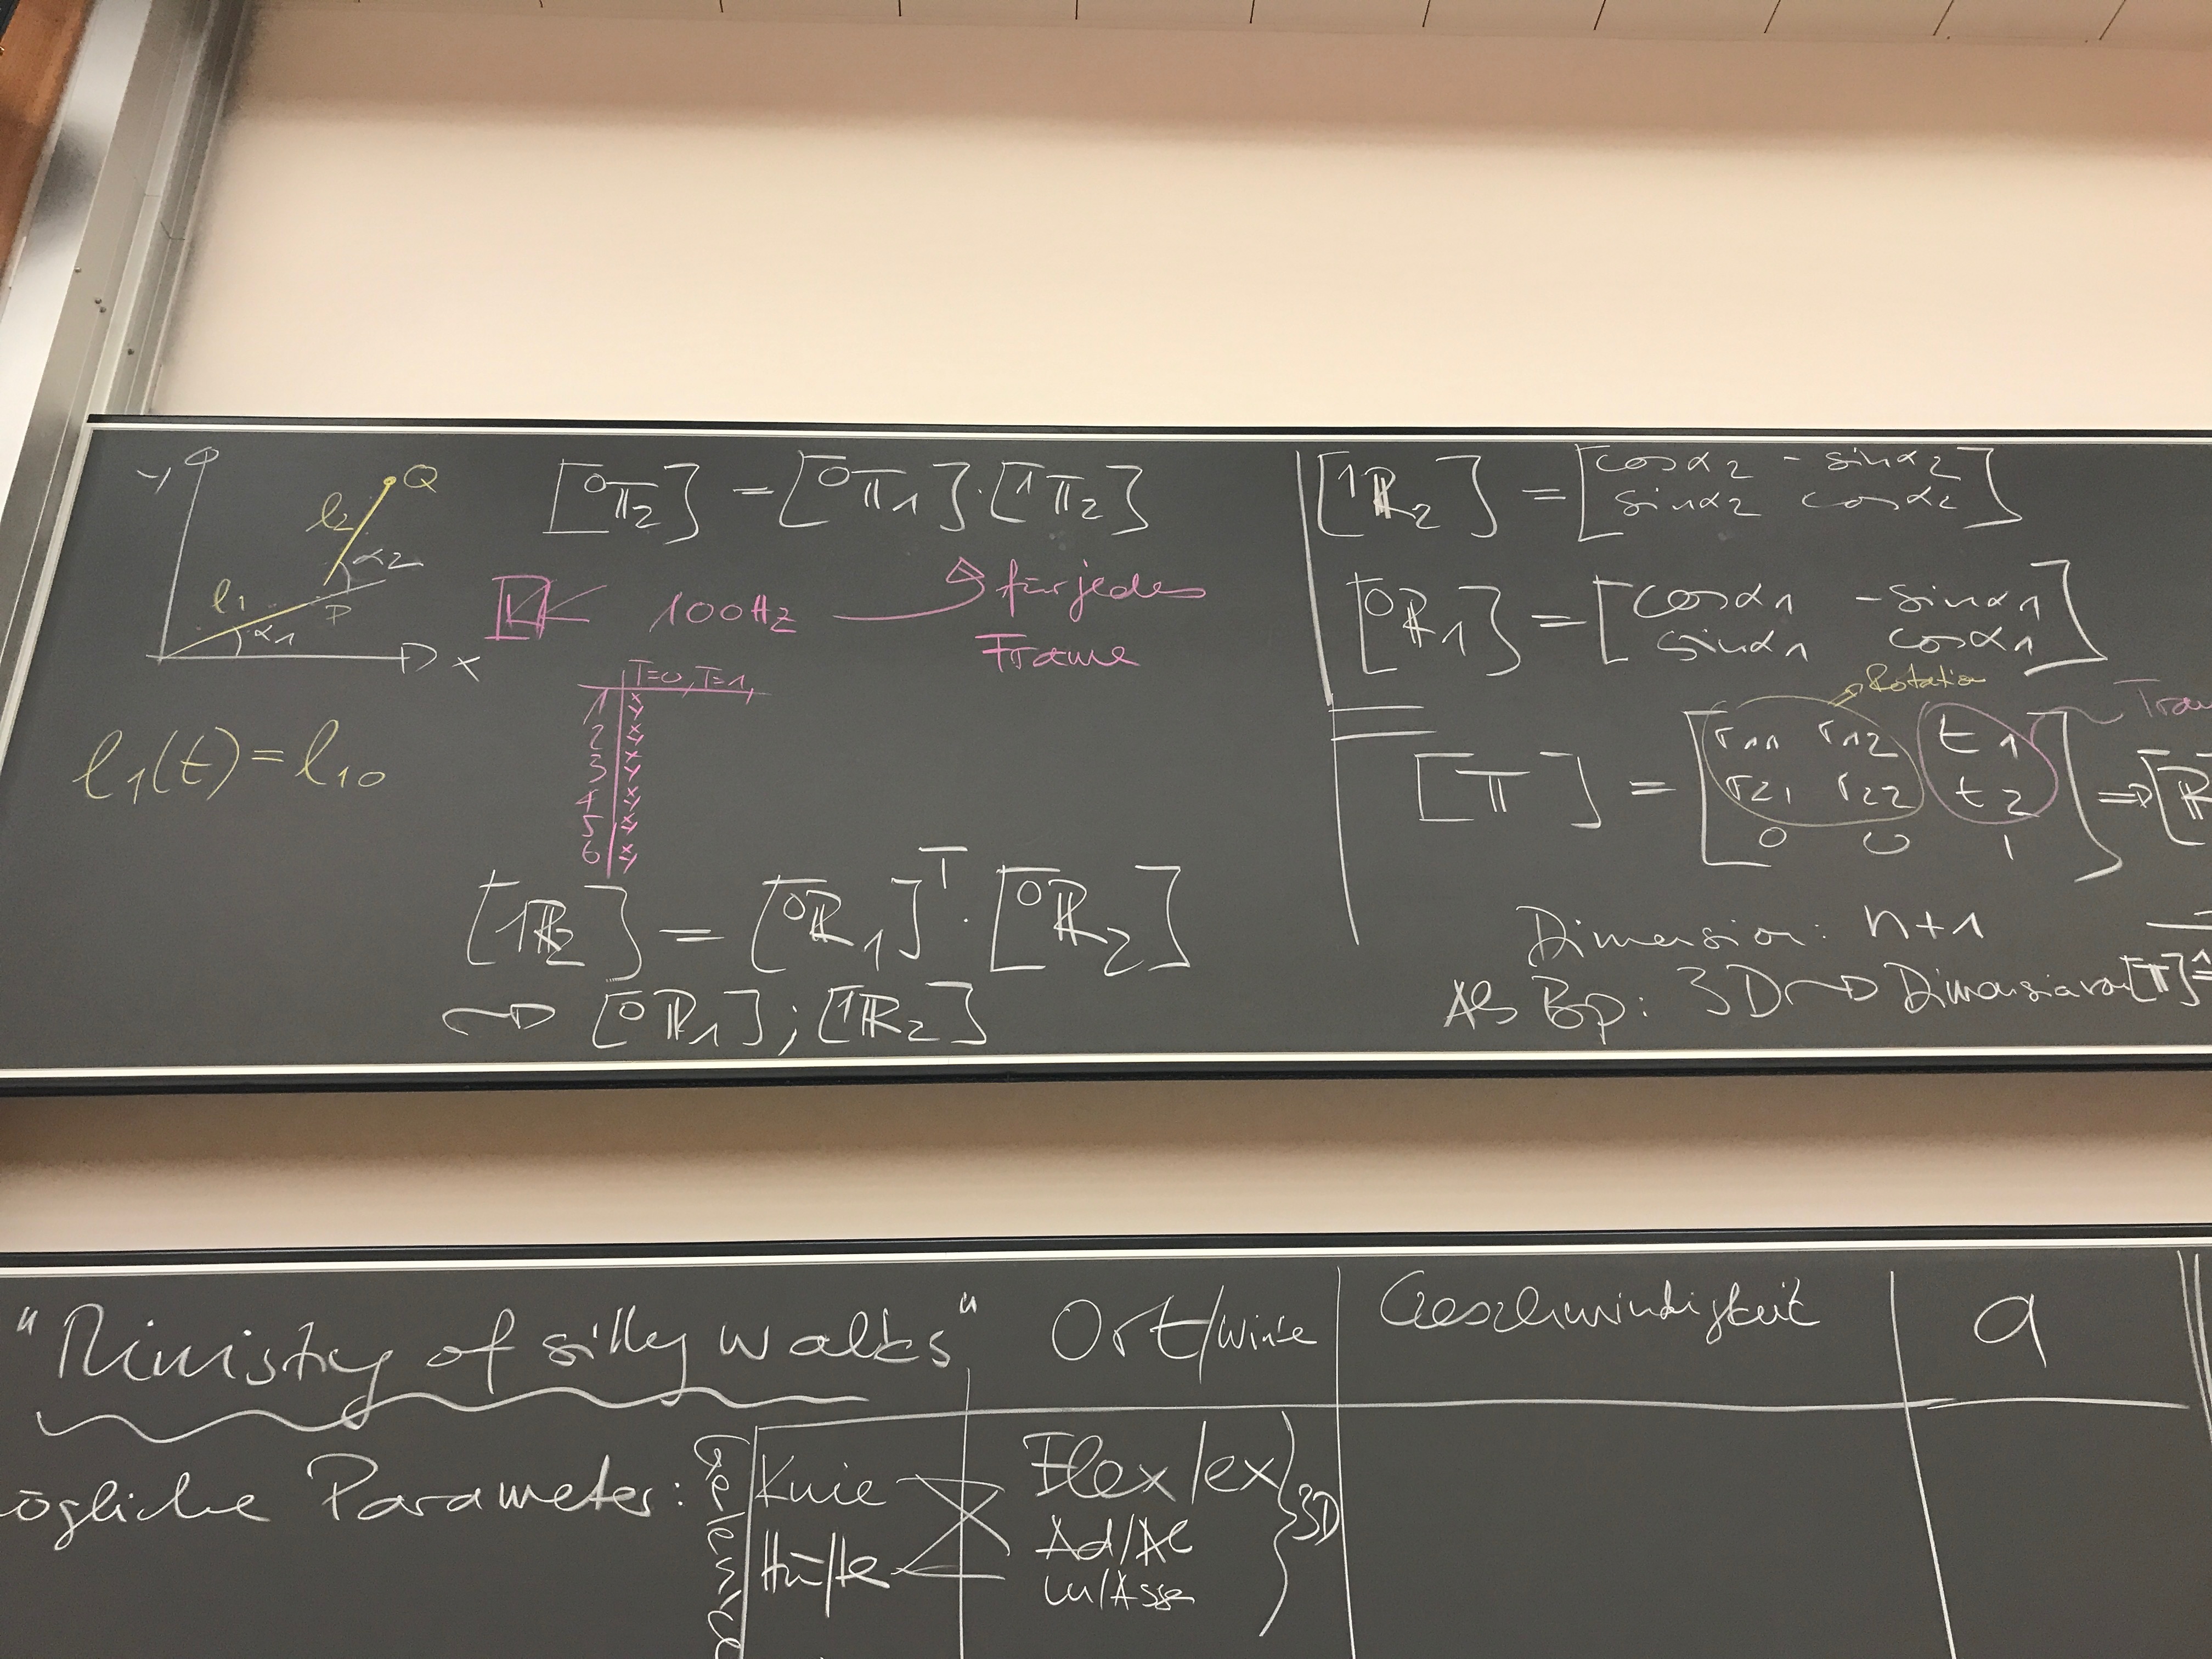 y
Q
l2
α2
l1
P
α1
x
l1(t) = l10
[⁰T2] = [⁰T1] · [¹T2]
100Hz
für jedes
Frame
T=0, T=1
1 x y
2 x y
3 x y
4 x y
5 x y
6 x y
[¹R2] = [⁰R1]ᵀ · [⁰R2]
[⁰R1] ; [¹R2]
[¹R2] = [cosα2 - sinα2
sinα2 cosα2]
[⁰R1] = [cosα1 - sinα1
sinα1 cosα1]
Rotation
Tran
[T] = [r11 r12 t1
r21 r22 t2
0 0 1] ⇒ [R
Dimension: n+1
Als Bp: 3D Dimension von [T] ≙
"Ministry of silly walks" Ort/Winke Geschwindigkeit a
ögliche Parameter:
Gelenke
Knie Flex/ex
Hüfte Ad/Ab
In/Asse
3D